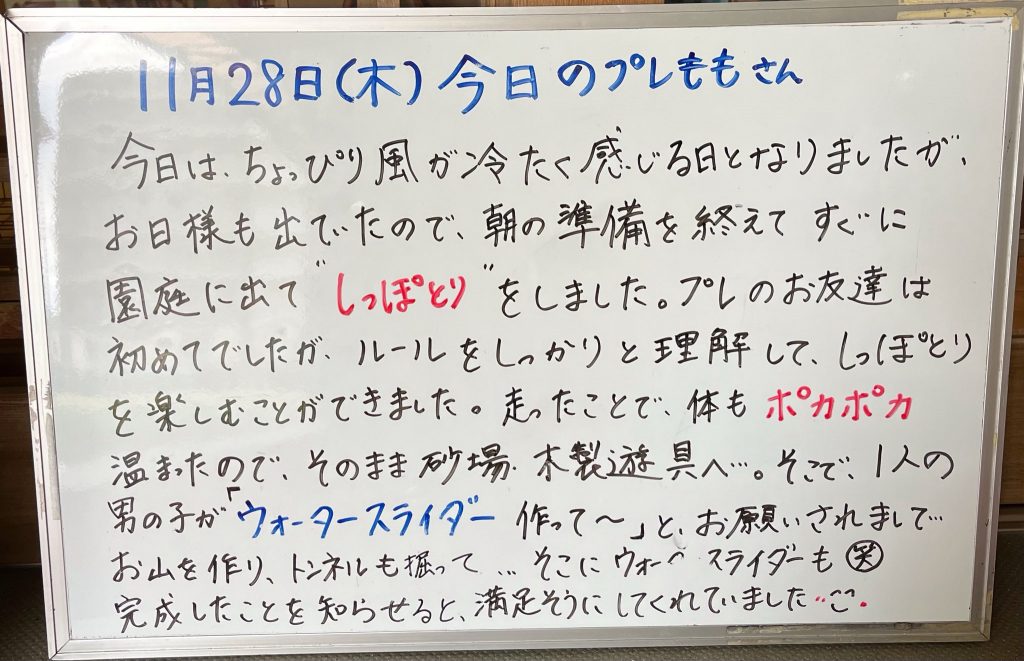 11月28日(木)今日のプレももさん
今日は、ちょっぴり風が冷たく感じる日となりましたが、
お日様も出ていたので、朝の準備を終えてすぐに
園庭に出て"しっぽとり"をしました。プレのお友達は
初めてでしたが、ルールをしっかりと理解して、しっぽとり
を楽しむことができました。走ったことで、体もポカポカ
温まったので、そのまま砂場・木製遊具へ…。そこで、1人の
男の子が「ウォータースライダー作って〜」と、お願いされまして…
お山を作り、トンネルも掘って…そこにウォースライダーも㊤
完成したことを知らせると、満足そうにしてくれていました